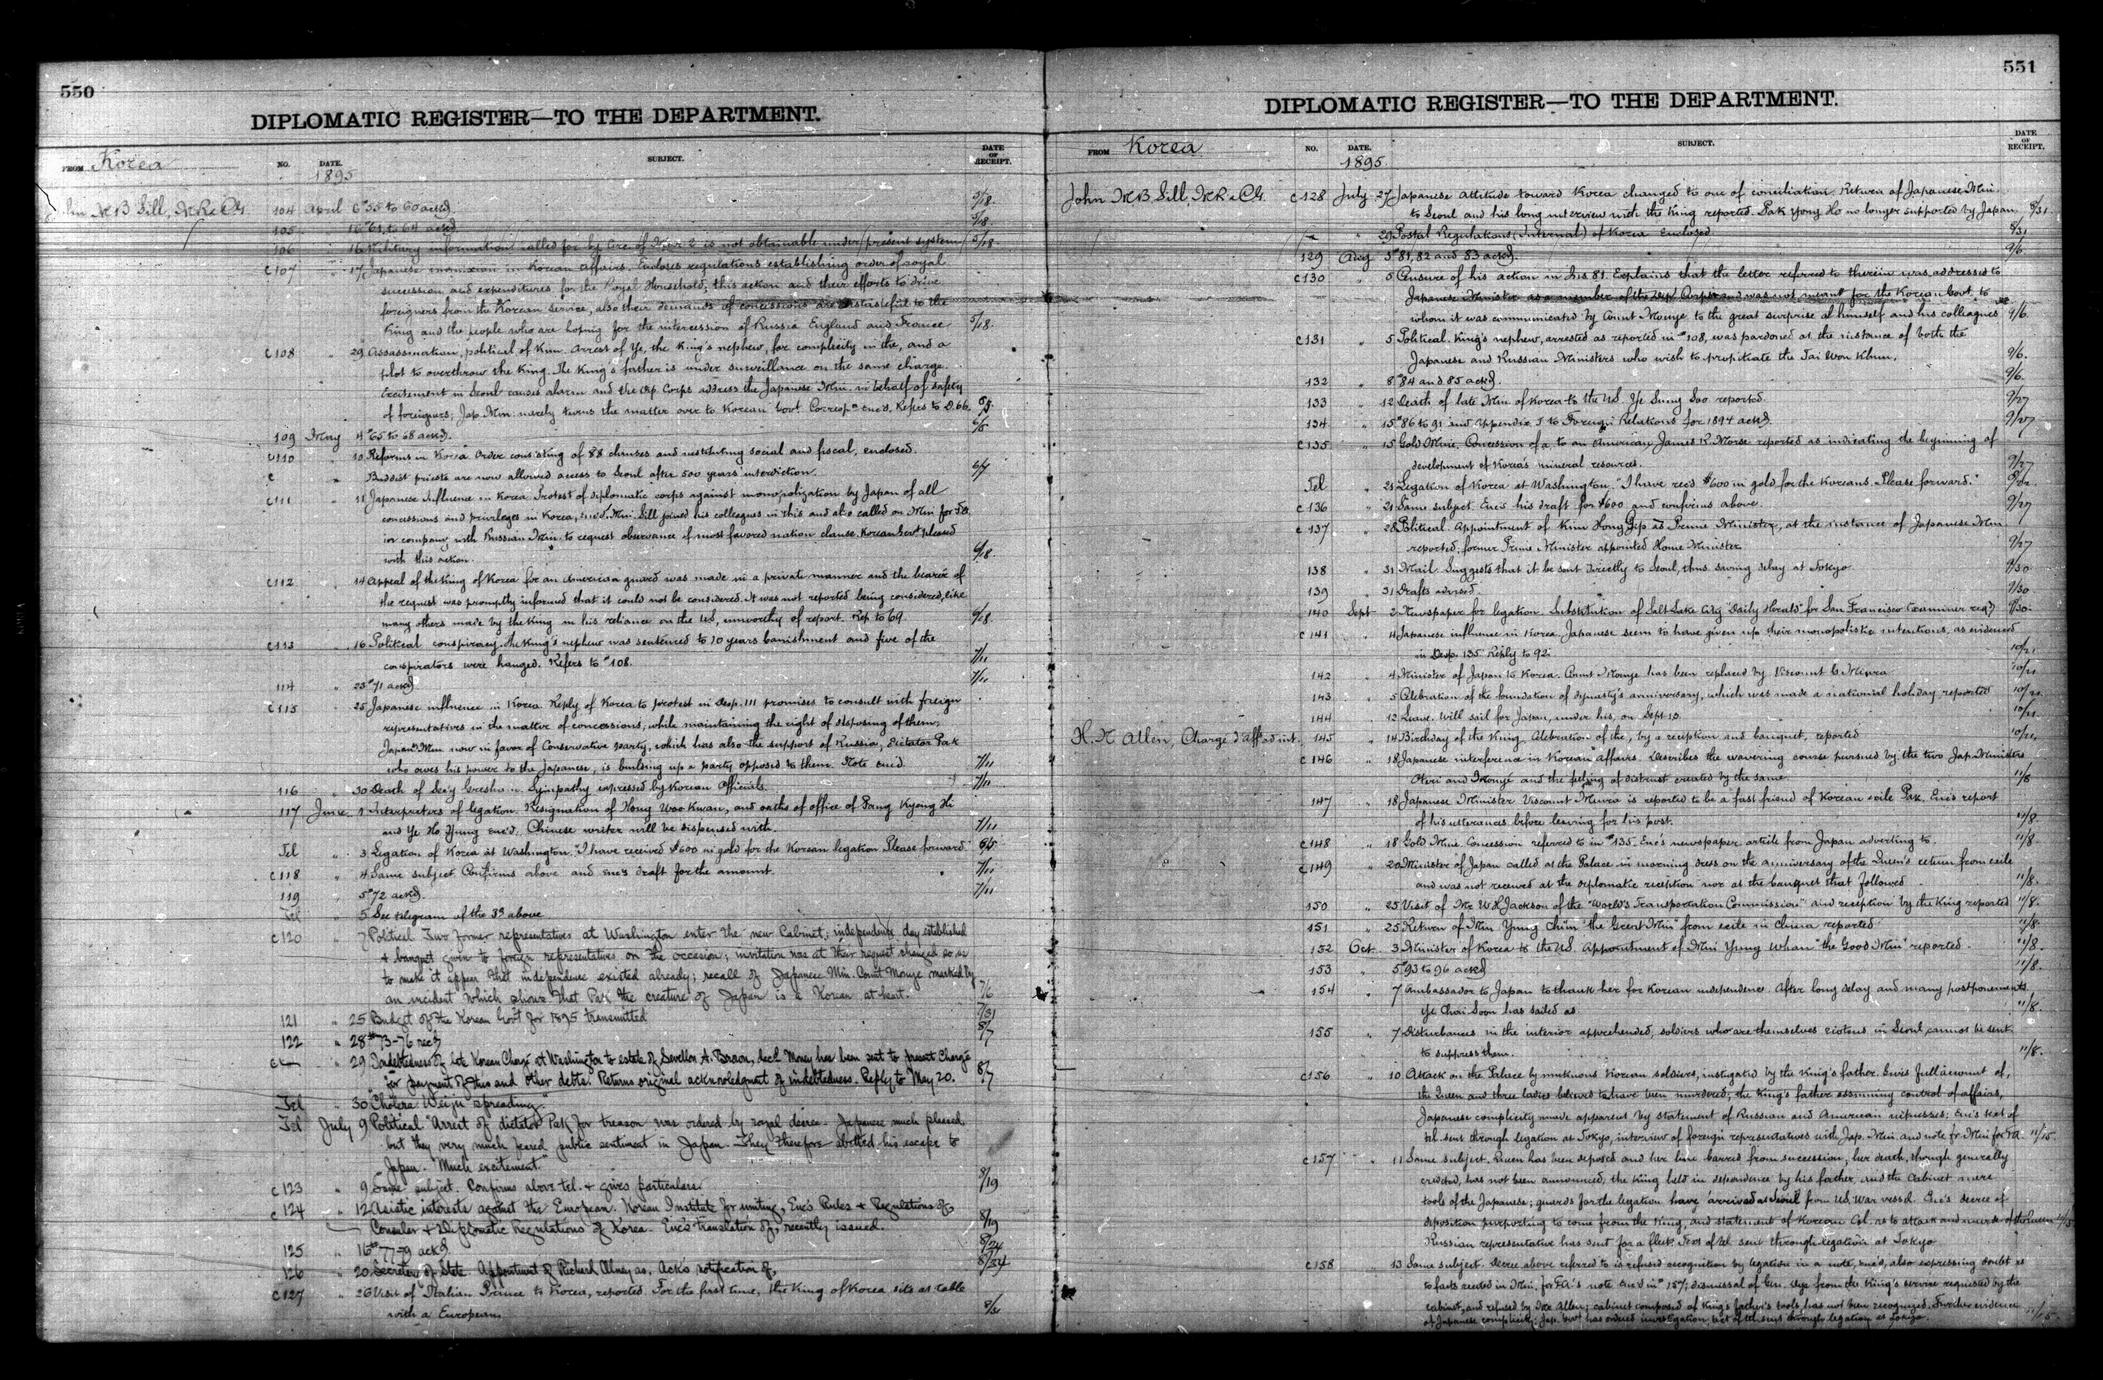 550
DIPLOMATIC REGISTER—TO THE DEPARTMENT.
FROM Korea NO. DATE. SUBJECT. DATE OF RECEIPT.
1895
John M B Sill, M.R. & C.G. 104 April 6 #55 to 60 ackd. 5/18.
105 " 16 #61 to 64 ackd 5/18.
106 " 16 Military information called for by Circ of is not obtainable under present system 5/18
C107 " 17 Japanese in Korean affairs. Encloses regulations establishing order of royal
succession and expenditures for the Royal Household; this action and their efforts to drive
foreigners from the Korean service, also their demands of concessions are distasteful to the
King and the people who are hoping for the intercession of Russia England and France 5/18.
C108 " 29 Assassination, political of Kim. Arrest of Ye, the King's nephew, for complicity in the, and a
plot to overthrow the King. The King's father is under surveillance on the same charge.
Excitement in Seoul causes alarm and the Dip. Corps address the Japanese Min. in behalf of safety
of foreigners; Jap. Min. merely turns the matter over to Korean Govt. Corresp. enc'd. Refers to D. 66.
109 May 4 #65 to 68 ackd.
C110 " 10 Reforms in Korea. Order consisting of 88 clauses and instituting social and fiscal, enclosed.
C " Buddist priests are now allowed access to Seoul after 500 years interdiction. 6/7
C111 " 11 Japanese Influence in Korea. Protest of diplomatic corps against monopolization by Japan of all
concessions and privileges in Korea, enc'd. Min. Sill joined his colleagues in this and also called on Min for F.A.
in company with Russian Min. to request observance of most favored nation clause. Korean Govt pleased
with this action. 6/18.
C112 " 14 Appeal of the King of Korea for an American guard was made in a private manner and the bearer of
the request was promptly informed that it could not be considered. It was not reported being considered, like
many others made by the King in his reliance on the U.S, unworthy of report. Rep. to 69. 6/18
C113 " 16 Political conspiracy. The King's nephew was sentenced to 10 years banishment and five of the
conspirators were hanged. Refers to #108. 7/11
114 " 23 #71 ackd 7/11
C115 " 25 Japanese influence in Korea. Reply of Korea to protest in Desp. 111 promises to consult with foreign
representatives in the matter of concessions, while maintaining the right of disposing of them;
Japan's Min now in favor of Conservative party, which has also the support of Russia, Dictator Pak
who owes his power to the Japanese, is building up a party opposed to them. Note enc'd. 7/11
116 " 30 Death of Sec'y Gresham. Sympathy expressed by Korean Officials. 7/11
117 June 1 Interpreters of legation. Resignation of Hong Woo Kwan, and oaths of office of Pang Kyong Hi
and Ye Ho Yung enc'd. Chinese writer will be dispensed with. 7/11
Tel " 3 Legation of Korea at Washington. "I have received $600 in gold for the Korean legation Please forward"
C118 " 4 Same subject Confirms above and enc's draft for the amount. 7/11
119 " 5 #72 ackd. 7/11
Tel " 5 See telegram of the 3d above
C120 " 7 Political Two former representatives at Washington enter the new Cabinet; independence day established
& banquet given to foreign representatives on the occasion; invitation was at their request changed so as
to make it appear that independence existed already; recall of Japanese Min. Count Inouye marked by
an incident which shows that Pak the creature of Japan is a Korean at heart. 7/6
121 " 25 Budget of the Korean Govt for 1895 transmitted 7/31
122 " 28 #73-76 recd 8/7
C " 29 Indebtedness of late Korean Chargé at Washington to estate of Sevellon A. Brown, dec'd Money has been sent to present Chargé
for payment of this and other debts. Returns original acknowledgment of indebtedness. Reply to May 20. 8/7
Tel " 30 "Cholera Weiju spreading"
Tel July 9 Political "Arrest of dictator Pak for treason was ordered by royal decree. Japanese much pleased
but they very much feared public sentiment in Japan. They therefore abetted his escape to
Japan. Much excitement."
C123 " 9 Same subject. Confirms above tel. & gives particulars 8/19
C124 " 12 Asiatic interests against the European. Korean Institute for uniting, Enc's Rules & Regulations of,
Consular & Diplomatic Regulations of Korea. Enc's translation of, recently issued. 8/19
125 " 16 #77-79 ackd 8/24
126 " 20 Secretary of State. Appointment of Richard Olney as. Ack's notification of,
C127 " 26 Visit of Italian Prince to Korea, reported For the first time, the King of Korea sits at table
with a European. 8/31
551
DIPLOMATIC REGISTER—TO THE DEPARTMENT.
FROM Korea NO. DATE. SUBJECT. DATE OF RECEIPT.
1895
John M B Sill, M.R. & C.G. C128 July 27 Japanese attitude toward Korea changed to one of conciliation. Return of Japanese Min.
to Seoul and his long interview with the King reported. Pak Yong Ho no longer supported by Japan. 8/31
" 29 Postal Regulations (Internal) of Korea Enclosed 8/31
129 Aug 5 #81, 82 and 83 ackd. 9/6.
C130 " 5 Censure of his action in his 81. Explains that the letter referred to therein was addressed to
Japanese Minister as a member of the Dip. Corps and was not meant for the Korean Govt. to
whom it was communicated by Count Inouye to the great surprise of himself and his colleagues 9/6.
C131 " 5 Political. King's nephew, arrested as reported in #108, was pardoned at the instance of both the
Japanese and Russian Ministers who wish to propitiate the Tai Won Khun. 9/6.
132 " 8 #84 and 85 ackd. 9/6
133 " 12 Death of late Min of Korea to the U.S. Ye Sung Soo reported. 9/27
134 " 15 #86 to 91 and Appendix I to Foreign Relations for 1894 ackd. 9/27
C135 " 15 Gold Mine. Concession of a, to an American, James R. Morse reported as indicating the beginning of
development of Korea's mineral resources. 9/27
Tel " 21 Legation of Korea at Washington. "I have rec'd $600 in gold for the Koreans. Please forward."
C136 " 21 Same subject. Enc's his draft for $600 and confirms above. 9/27
C137 " 28 Political. Appointment of Kim Hong Jip as Prime Minister, at the instance of Japanese Min.
reported; former Prime Minister appointed Home Minister. 9/27
138 " 31 Mail. Suggests that it be sent directly to Seoul, thus saving delay at Tokyo. 9/30
139 " 31 Drafts advised 9/30
140 Sept 2 Newspaper for legation. Substitution of Salt Lake City "Daily Herald" for San Francisco Examiner req'd 9/30.
C141 " 4 Japanese influence in Korea. Japanese seem to have given up their monopolistic intentions, as evidenced
in Desp. 135 Reply to 92. 10/21
142 " 4 Minister of Japan to Korea. Count Inouye has been replaced by Viscount G. Miura 10/21
143 " 5 Celebration of the foundation of dynasty's anniversary, which was made a national holiday reported 10/21.
144 " 12 Leave. Will sail for Japan, under his, on Sept. 13. 10/21
H. N. Allen, Chargé d'aff. ad int. 145 " 14 Birthday of the King. Celebration of the, by a reception and banquet, reported 10/21.
C146 " 18 Japanese interference in Korean affairs. Describes the wavering course pursued by the two Jap. Ministers
Otori and Inouye and the feeling of distrust created by the same. 11/8
147 " 18 Japanese Minister Viscount Miura is reported to be a fast friend of Korean exile Pak. Enc's report
of his utterances before leaving for his post. 11/8.
C148 " 18 Gold Mine. Concession referred to in #135. Enc's newspaper article from Japan adverting to. 11/8.
C149 " 20 Minister of Japan called at the Palace in morning dress on the anniversary of the Queen's return from exile
and was not received at the diplomatic reception nor at the banquet that followed. 11/8.
150 " 25 Visit of Mr W H Jackson of the "World's Transportation Commission" and reception by the King reported 11/8.
151 " 25 Return of Min Yung Chun "the Great Min" from exile in China reported 11/8.
152 Oct. 3 Minister of Korea to the U.S. Appointment of Min Yung Whan "the Good Min" reported. 11/8.
153 " 5 #93 to 96 ackd 11/8.
154 " 7 Ambassador to Japan to thank her for Korean independence. After long delay and many postponements
Ye Chai Soon has sailed as 11/8.
155 " 7 Disturbances in the interior apprehended, soldiers who are themselves riotous in Seoul, cannot be sent
to suppress them. 11/8.
C156 " 10 Attack on the Palace by mutinous Korean soldiers, instigated by the King's father. Gives full account of,
the Queen and three ladies believed to have been murdered; the King's father assuming control of affairs,
Japanese complicity made apparent by statement of Russian and American witnesses; Enc's text of
tel. sent through legation at Tokyo, interview of foreign representatives with Jap. Min. and note fr. Min for F.A. 11/15.
C157 " 11 Same subject. Queen has been deposed and her line barred from succession, her death, though generally
credited, has not been announced, the King held in dependence by his father, and the Cabinet mere
tools of the Japanese; guards for the legation have arrived at Seoul from U.S. War vessel. Enc's decree of
deposition purporting to come from the King, and statement of Korean Col. as to attack and murder of the Queen
Russian representative has sent for a fleet. Text of tel. sent through legation at Tokyo
C158 " 13 Same subject. Decree above referred to is refused recognition by legation in a note, enc'd, also expressing doubt as
to facts recited in Min. for F.A.'s note enc'd in #157; dismissal of Gen. Dye from the King's service requested by the
cabinet, and refused by Mr Allen; cabinet composed of King's father's tools, has not been recognized. Further evidence
of Japanese complicity; Jap. Govt has ordered investigation; text of tel. sent through legation at Tokyo. 11/15.